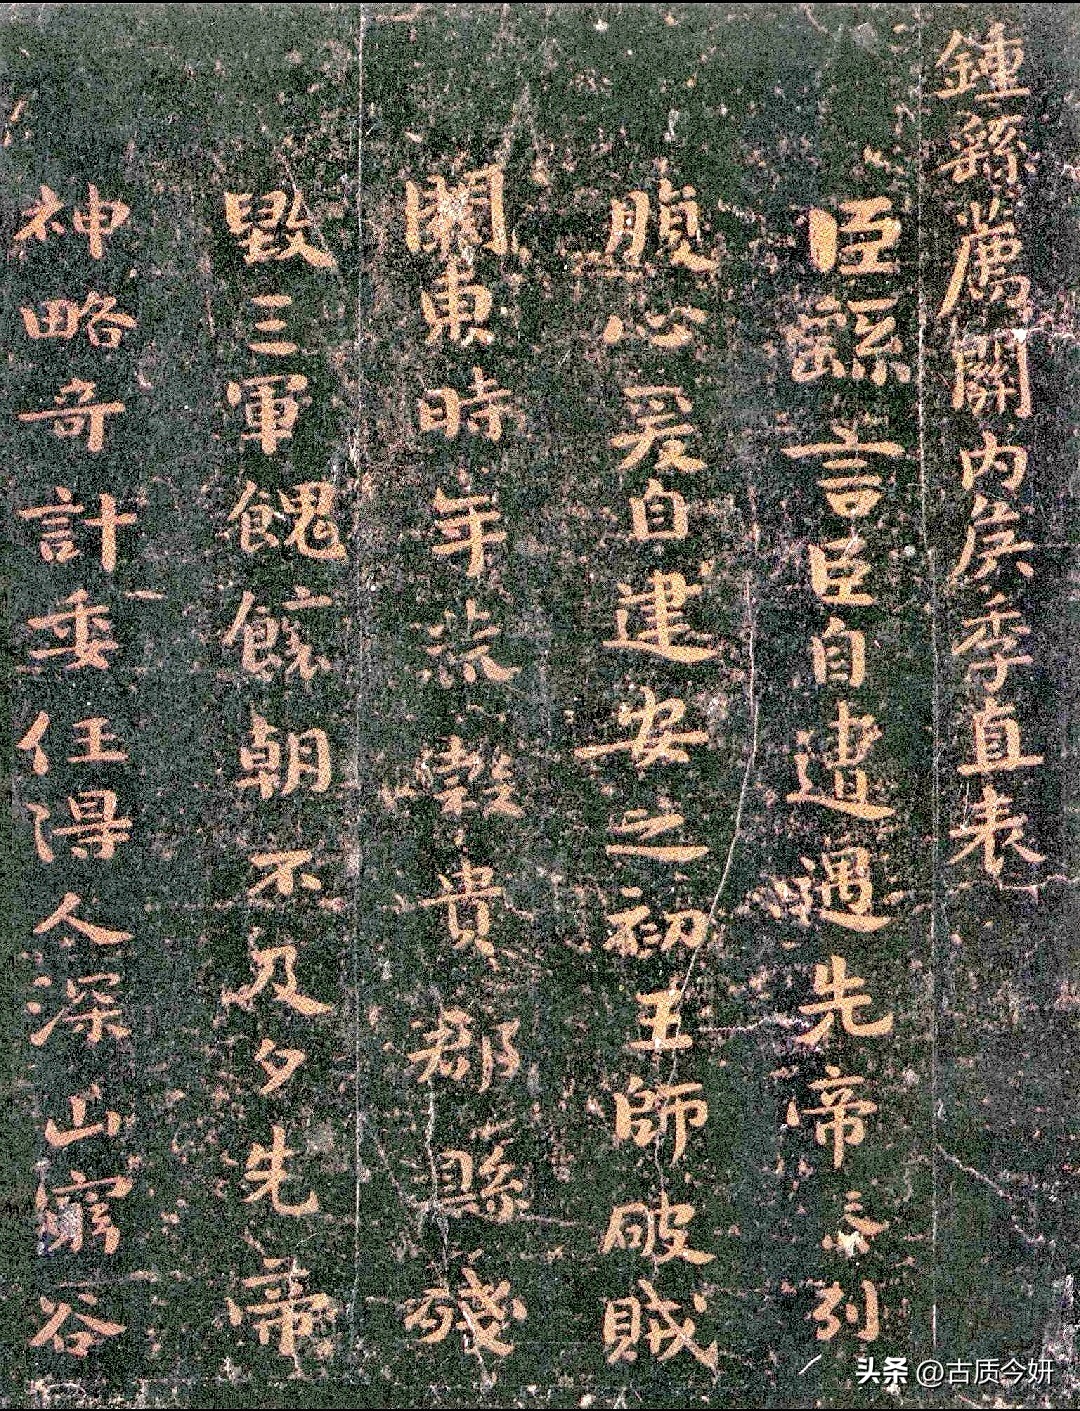 鍾繇薦關内侯季直表
臣繇言臣自遭遇先帝忝列
腹心爰自建安之初王師破賊
關東時年荒榖貴郡縣殘
毀三軍餽饟朝不及夕先帝
神略奇計委任得人深山窮谷
头条 @古质今妍